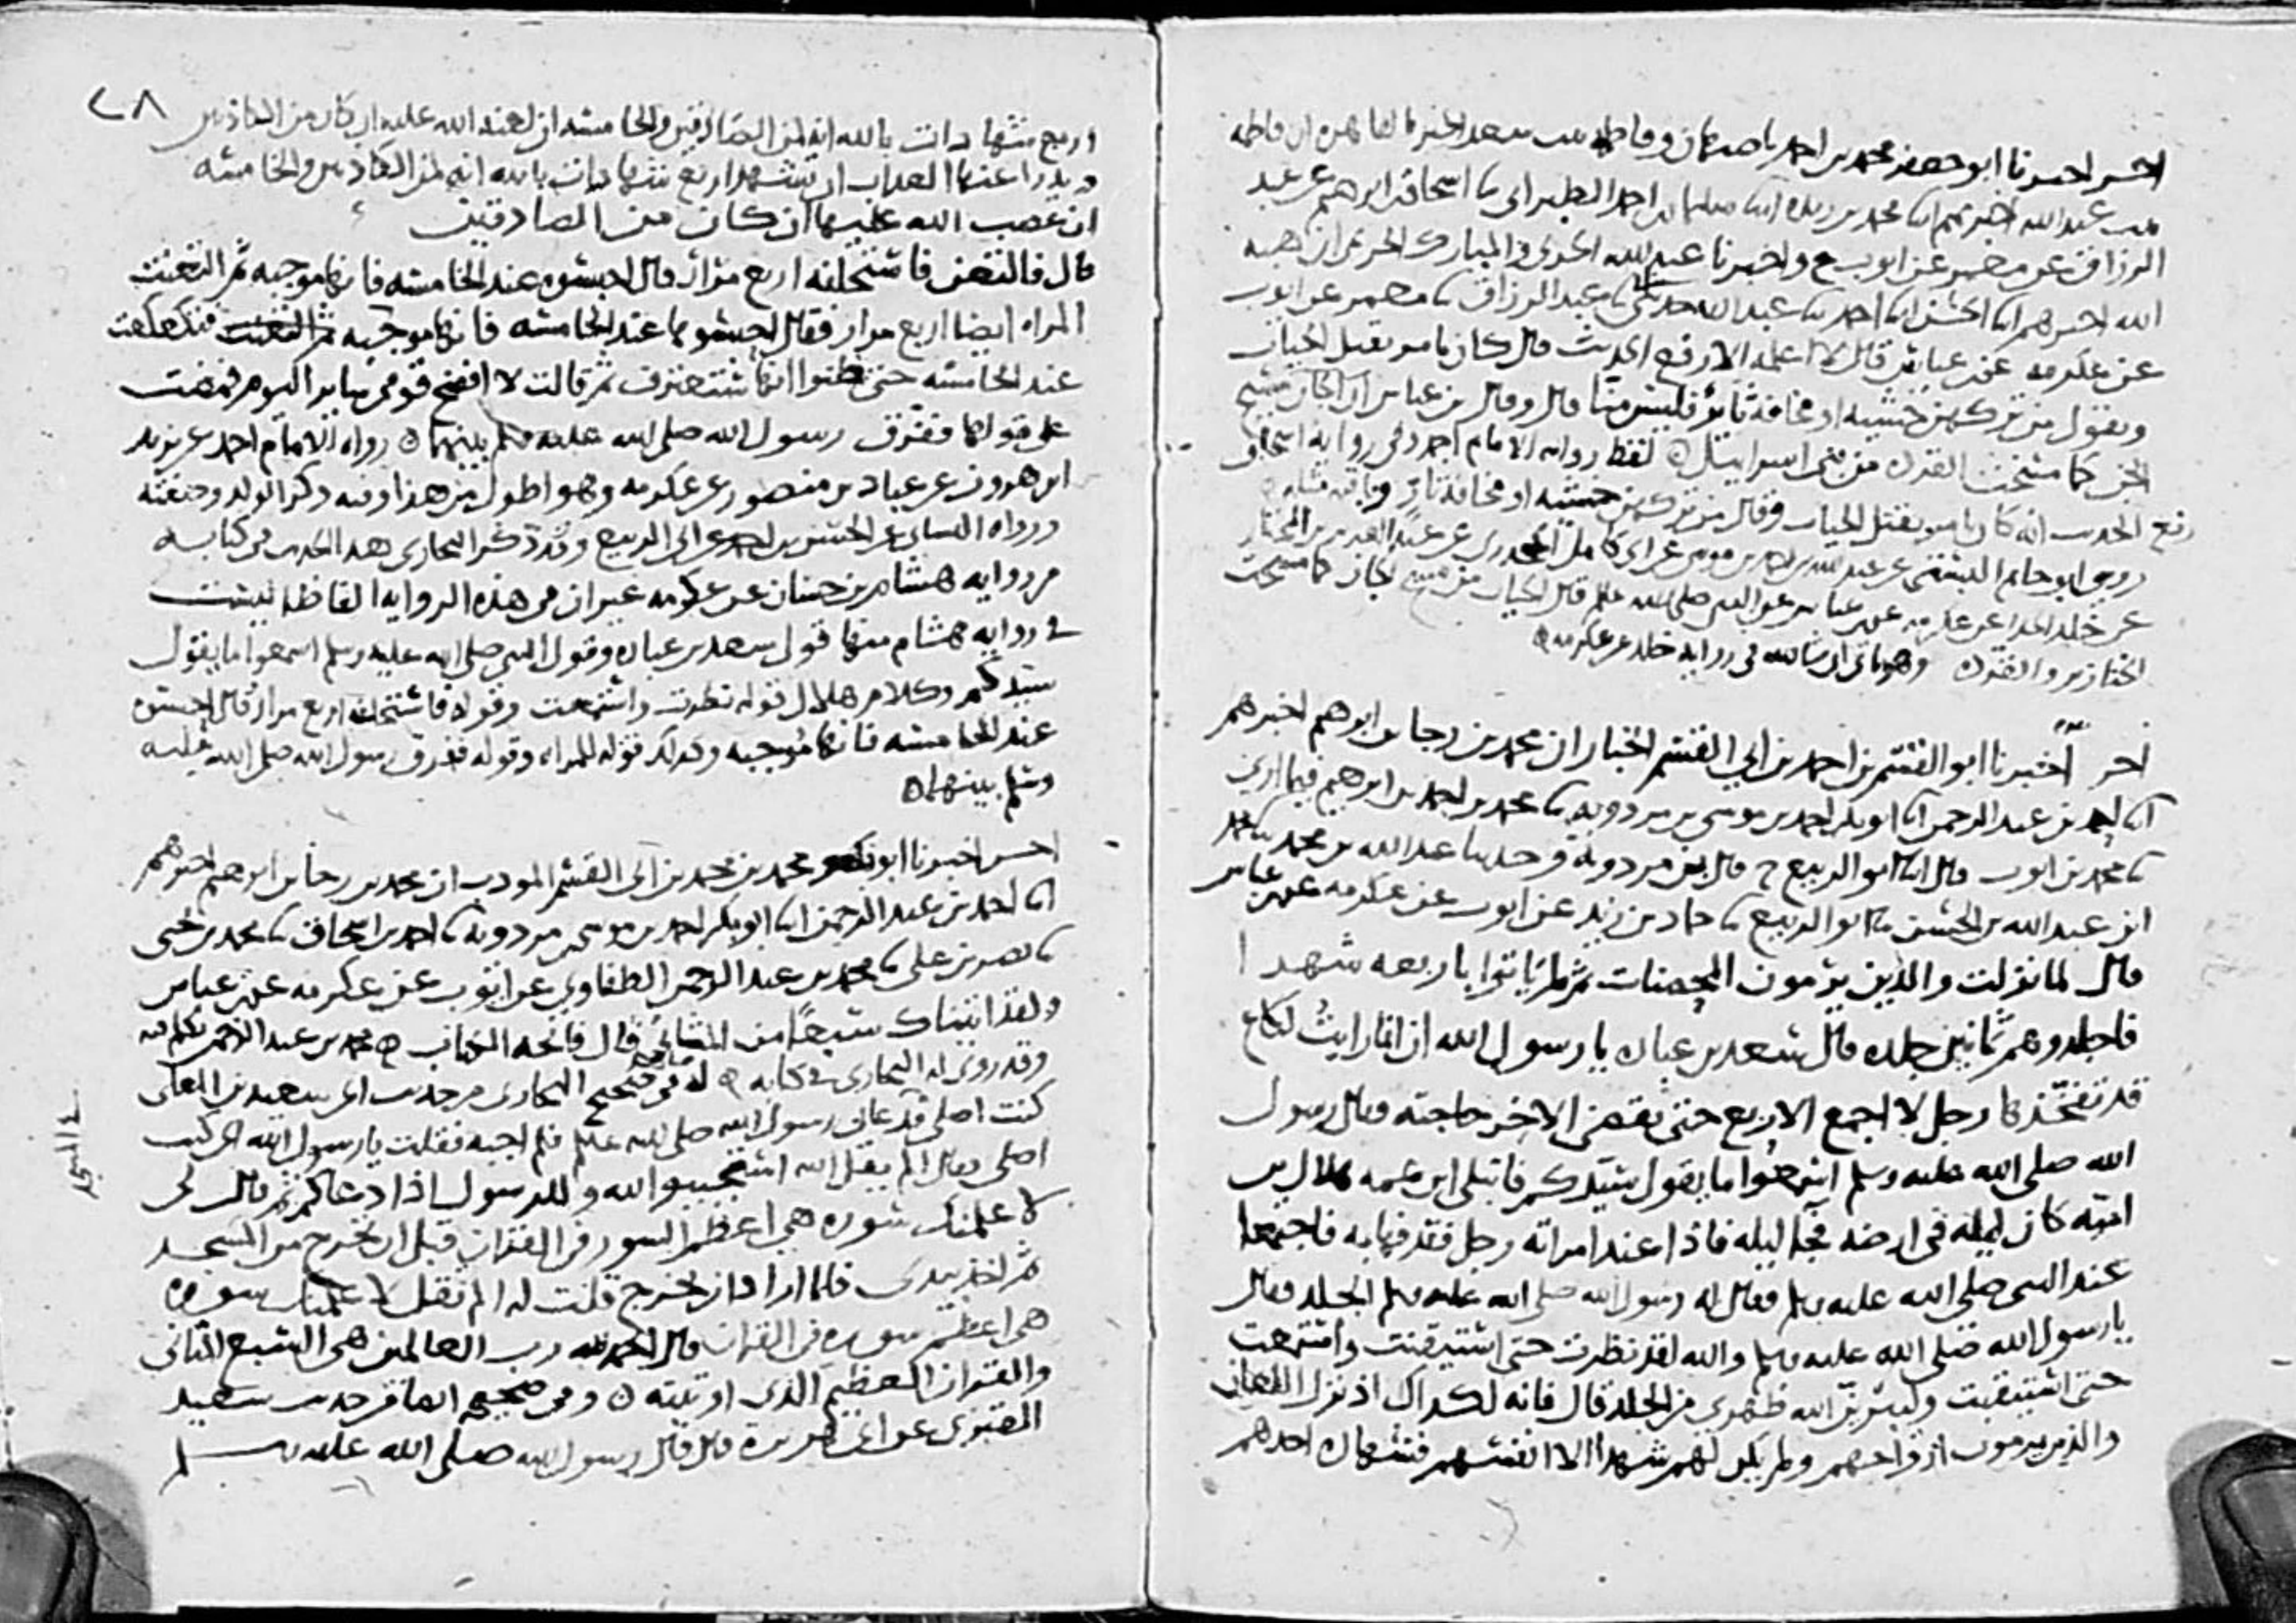 اخر اخبرنا ابو جعفر محمد بن احمد باصبهان وفاطمه بنت سعد الخير بالقاهره ان فاطمه
بنت عبد الله اخبرتهم ابنا محمد بن ريذه ابنا سليمان بن احمد الطبراني نا اسحاق بن ابرهيم عن عبد
الرزاق عن معمر عن ايوب ح واخبرنا عبد الله بن المبارك الحربي ان هبه
الله اخبرهم ابنا الحسن ابنا احمد نا عبد الله حدثني نا عبد الرزاق نا معمر عن ايوب
عن عكرمه عن بن عباس قال لا اعلمه الا رفع الحديث قال كان يامر بقتل الحيات
ويقول من تركهن خشيه او مخافة ثاير فليس منا قال وقال بن عباس ان الجان مسيخ
الجن كما مسخت القرده من بني اسرائيل لفظ روايه الامام احمد وفي روايه اسحاق
رفع الحديث انه كان يامر بقتل الحيات وقال من تركهن خشيه او مخافة ثاير وباقيه مثله
روى ابو حاتم البستي عن عبد الله بن احمد بن موسى عن ابي كامل الجحدري عن عبد العزيز بن المختار
عن خالد الحذا عن عكرمه عن بن عباس عن النبي صلى الله عليه وسلم قال الحيات من مسخ الجان كما مسخت
الخنازير والقرده وهو ياتي ان شا الله في روايه خالد عن عكرمه
اخر اخبرنا ابو القسم بن احمد بن ابي القسم الخباز ان محمد بن رجا بن ابرهيم اخبرهم
ابنا احمد بن عبد الرحمن ابنا ابو بكر احمد بن موسى بن مردويه نا محمد بن احمد بن ابرهيم فيما ارى
نا محمد بن ايوب قال ابنا ابو الربيع ح قال بن مردويه وحدثنا عبد الله بن محمد نا محمد
ابن عبد الله بن الحسن نا ابو الربيع نا حماد بن زيد عن ايوب عن عكرمه عن بن عباس
قال لما نزلت والذين يرمون المحصنات ثم لم ياتوا باربعه شهدا
فاجلدوهم ثمانين جلده قال سعد بن عباده يا رسول الله ان انا رايت لكاع
قد تفخذها رجل لا اجمع الاربع حتى يقضي الاخر حاجته وقال رسول
الله صلى الله عليه وسلم اسمعوا ما يقول سيدكم فابتلي ابن عمه هلال بن
اميه كان ليله في ارضه فجا ليله فاذا عند امراته رجل فقذفها به فاجتمعا
عند النبي صلى الله عليه وسلم فقال له رسول الله صلى الله عليه وسلم الجلد فقال
يا رسول الله صلى الله عليه وسلم والله لقد نظرت حتى استيقنت واستمعت
حتى استيقنت وليبرين الله ظهري من الجلد قال فانه لكذاك اذ نزل اللعان
والذين يرمون ازواجهم ولم يكن لهم شهدا الا انفسهم فشهاده احدهم
٢٨
اربع شهادات بالله انه لمن الصادقين والخامسه ان لعنه الله عليه ان كان من الكاذبين
ويدرا عنها العذاب ان تشهد اربع شهادات بالله انه لمن الكاذبين والخامسه
ان غضب الله عليها ان كان من الصادقين
قال فالتعن فاستحلفه اربع مرار قال احبسوه عند الخامسه فانها موجبه ثم التعنت
المراه ايضا اربع مرار فقال احبسوها عند الخامسه فانها موجبه ثم التعنت فتكعكعت
عند الخامسه حتى ظنوا انها ستعترف ثم قالت لا افضح قومي ساير اليوم فمضت
على قولها ففرق رسول الله صلى الله عليه وسلم بينهما رواه الامام احمد عن يزيد
ابن هرون عن عباد بن منصور عن عكرمه وهو اطول من هذا وفيه ذكر الولد وصفته
ورواه النسائي عن الحسن بن احمد عن ابي الربيع وقد ذكر البخاري هذا الحديث في كتابه
من روايه هشام بن حسان عن عكرمه غير ان في هذه الروايه الفاظا ليست
في روايه هشام منها قول سعد بن عباده وقول النبي صلى الله عليه وسلم اسمعوا ما يقول
سيدكم وكلام هلال قوله نظرت واستمعت وقوله فاستحلفه اربع مرار قال احبسوه
عند الخامسه فانها موجبه وكذلك قوله للمراه وقوله ففرق رسول الله صلى الله عليه
وسلم بينهما
اخر اخبرنا ابو محمد بن محمد بن ابي القسم المودب ان محمد بن رجا بن ابرهيم اخبرهم
ابنا احمد بن عبد الرحمن ابنا ابو بكر احمد بن موسى بن مردويه نا احمد بن اسحاق نا محمد بن يحيى
نا نصر بن علي نا محمد بن عبد الرحمن الطفاوي عن ايوب عن عكرمه عن بن عباس
ولقد اتيناك سبعا من المثاني قال فاتحه الكتاب محمد بن عبد الرحمن تكلم فيه
وقد روى له البخاري في كتابه له في صحيح البخاري من حديث ابي سعيد بن المعلى
كنت اصلي فدعاني رسول الله صلى الله عليه وسلم فلم اجبه فقلت يا رسول الله اني كنت
اصلي فقال الم يقل الله استجيبوا لله وللرسول اذا دعاكم ثم قال لي
لاعلمنك سوره هي اعظم السور في القران قبل ان تخرج من المسجد
ثم اخذ بيدي فلما اراد ان يخرج قلت له الم تقل لاعلمنك سوره
هي اعظم سوره في القران قال الحمد لله رب العالمين هي السبع المثاني
والقران العظيم الذي اوتيته وفي صحيحه ايضا من حديث سعيد
المقبري عن ابي هريرة قال قال رسول الله صلى الله عليه وسلم